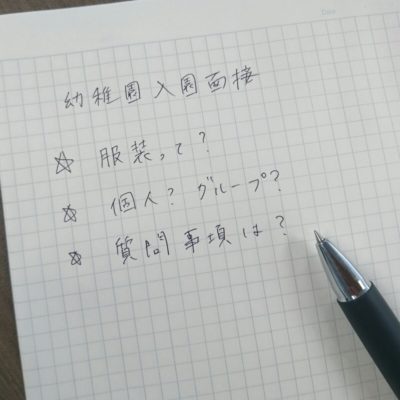 幼稚園入園面接
☆ 服装って?
☆ 個人? グループ?
☆ 質問事項は?